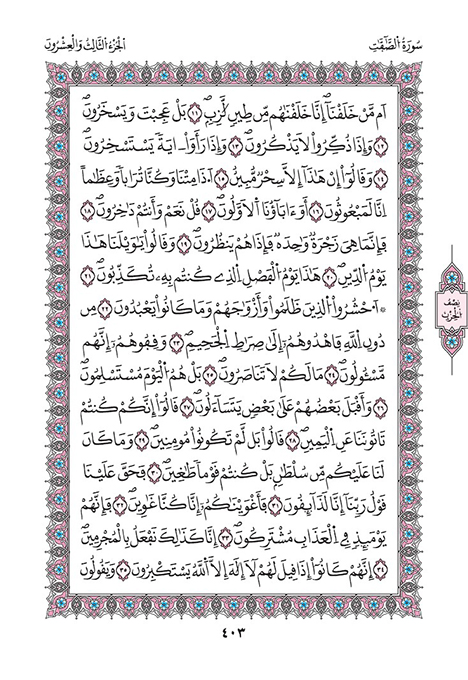 سُورَةُ الصَّٰٓفَّٰتِ
الجُزْءُ الثَّالِثُ وَالْعِشْرُونَ
أَم مَّنْ خَلَقْنَآ إِنَّا خَلَقْنَٰهُم مِّن طِينٖ لَّازِبِۢ ١١ بَلْ عَجِبْتَ وَيَسْخَرُونَ
١٢ وَإِذَا ذُكِّرُواْ لَا يَذْكُرُونَ ١٣ وَإِذَا رَأَوَاْ ـَايَةٗ يَسْتَسْخِرُونَ
١٤ وَقَالُوٓاْ إِنْ هَٰذَآ إِلَّا سِحْرٞ مُّبِينٌ ١٥ أَ.ذَا مِتْنَا وَكُنَّا تُرَاباٗ وَعِظَٰماً
اِنَّا لَمَبْعُوثُونَ ١٦ أَوَءَابَآؤُنَا اَلَاوَّلُونَ ١٧ قُلْ نَعَمْ وَأَنتُمْ دَٰخِرُونَ ١٨
فَإِنَّمَا هِيَ زَجْرَةٞ وَٰحِدَةٞ فَإِذَا هُمْ يَنظُرُونَ ١٩ وَقَالُواْ يَٰوَيْلَنَا هَٰذَا
يَوْمُ اُلدِّينِ ٢٠ هَٰذَا يَوْمُ اُلْفَصْلِ اِلذِے كُنتُم بِهِۦ تُكَذِّبُونَ ٢١
* اَحْشُرُواْ الذِينَ ظَلَمُواْ وَأَزْوَٰجَهُمْ وَمَا كَانُواْ يَعْبُدُونَ ٢٢ مِن
دُونِ اِللَّهِ فَاهْدُوهُمُۥٓ إِلَىٰ صِرَٰطِ اِلْجَحِيمِ ٢٣ وَقِفُوهُمُۥٓ إِنَّهُم
مَّسْـُٔولُونَ ٢٤ مَا لَكُمْ لَا تَنَاصَرُونَ ٢٥ بَلْ هُمُ اُلْيَوْمَ مُسْتَسْلِمُونَ
٢٦ وَأَقْبَلَ بَعْضُهُمْ عَلَىٰ بَعْضٖ يَتَسَآءَلُونَ ٢٧ قَالُوٓاْ إِنَّكُمْ كُنتُمْ
تَاتُونَنَا عَنِ اِلْيَمِينِ ٢٨ قَالُواْ بَل لَّمْ تَكُونُواْ مُومِنِينَ ٢٩ وَمَا كَانَ
لَنَا عَلَيْكُم مِّن سُلْطَٰنِۢ بَلْ كُنتُمْ قَوْماٗ طَٰغِينَ ٣٠ فَحَقَّ عَلَيْنَا
قَوْلُ رَبِّنَآ إِنَّا لَذَآئِقُونَ ٣١ فَأَغْوَيْنَٰكُمُۥٓ إِنَّا كُنَّا غَٰوِينَ ٣٢ فَإِنَّهُمْ
يَوْمَئِذٖ فِي اِلْعَذَابِ مُشْتَرِكُونَ ٣٣ إِنَّا كَذَٰلِكَ نَفْعَلُ بِالْمُجْرِمِينَ
٣٤ إِنَّهُمْ كَانُوٓاْ إِذَا قِيلَ لَهُمْ لَآ إِلَٰهَ إِلَّا اَللَّهُ يَسْتَكْبِرُونَ ٣٥ وَيَقُولُونَ
نِصْف
الحِزْب
٤٠٣